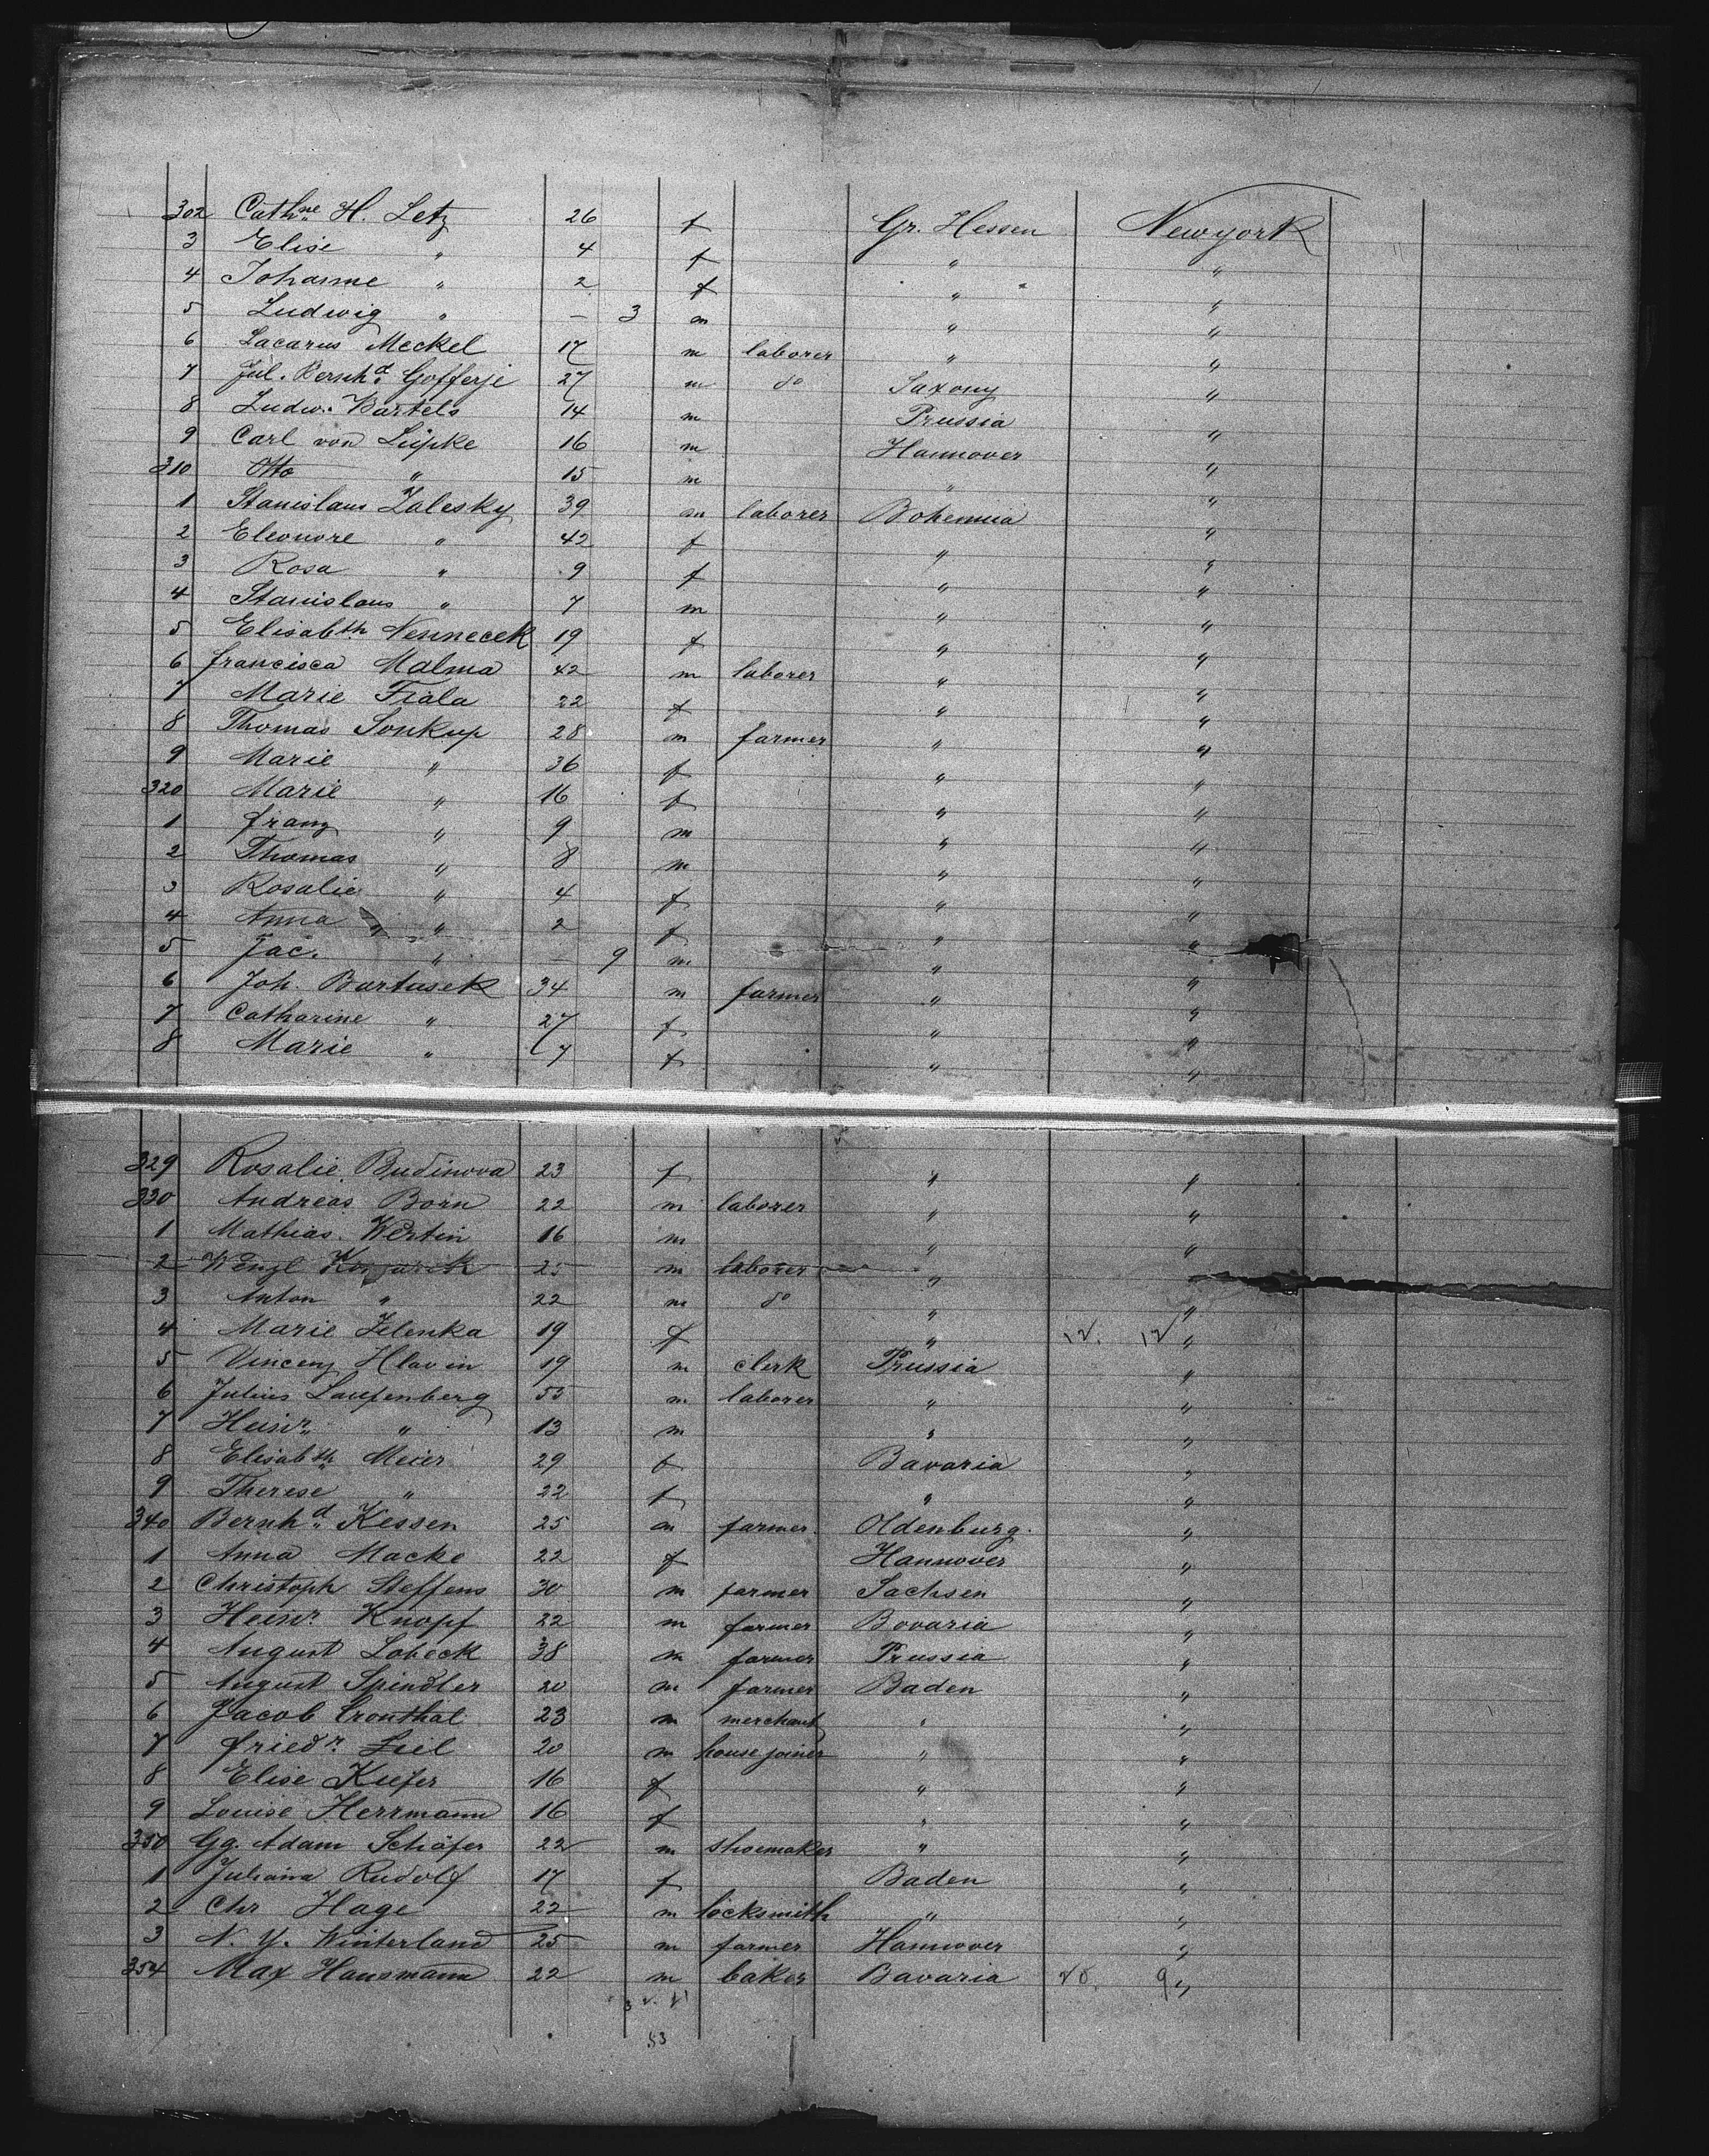 302 Cathne H. Letz 26 f Gr. Hessen Newyork
3 Elise " 4 f " "
4 Johanne " 2 f " "
5 Ludwig " — 3 m " "
6 Lacarus Meckel 17 m laborer " "
7 Jul. Bernhd. Gofferje 27 m do Saxony "
8 Ludw. Bartels 14 m Prussia "
9 Carl von Lüpke 16 m Hannover "
310 Otto " 15 m " "
1 Stanislaus Zalesky 39 m laborer Bohemia "
2 Eleonore " 42 f " "
3 Rosa " 9 f " "
4 Stanislaus " 7 m " "
5 Elisabth Nennecek 19 f " "
6 Francisca Malma 42 m laborer " "
7 Marie Fiala 22 f " "
8 Thomas Soukup 28 m farmer " "
9 Marie " 36 f " "
320 Marie " 16 f " "
1 Franz " 9 m " "
2 Thomas " 8 m " "
3 Rosalie " 4 f " "
4 Anna " 2 f " "
5 Jac. " — 9 m " "
6 Joh. Bartusek 34 m farmer " "
7 Catharine " 27 f " "
8 Marie " 7 f " "
329 Rosalie Budinova 23 f " "
330 Andreas Born 22 m laborer " "
1 Mathias Wertin 16 m " "
2 Wenzl 25 m laborer " "
3 Anton " 22 m do " "
4 Marie Zelenka 19 f " 12. 12 "
5 Vincenz Hlavin 19 m clerk Prussia "
6 Julius Laufenberg 55 m laborer " "
7 Heinr. " 13 m " "
8 Elisabth Meier 29 f Bavaria "
9 Therese " 22 f " "
340 Bernhd. Kessen 25 m farmer Oldenburg. "
1 Anna Macke 22 f Hannover "
2 Christoph Steffens 30 m farmer Sachsen "
3 Heinr. Knopf 22 m farmer Bovaria "
4 August Lobeck 38 m farmer Prussia "
5 August Spindler 20 m farmer Baden "
6 Jacob Cronthal 23 m merchant " "
7 Friedr. Liel 20 m house joiner " "
8 Elise Kiefer 16 f " "
9 Louise Herrmann 16 f " "
350 Gg. Adam Schäfer 22 m shoemaker " "
1 Juliana Rudolf 17 f Baden "
2 Chr Hage 22 m locksmith " "
3 N. Y. Winterland 25 m farmer Hannover "
354 Max Hausmann 22 m baker Bavaria 20. 9 "
53